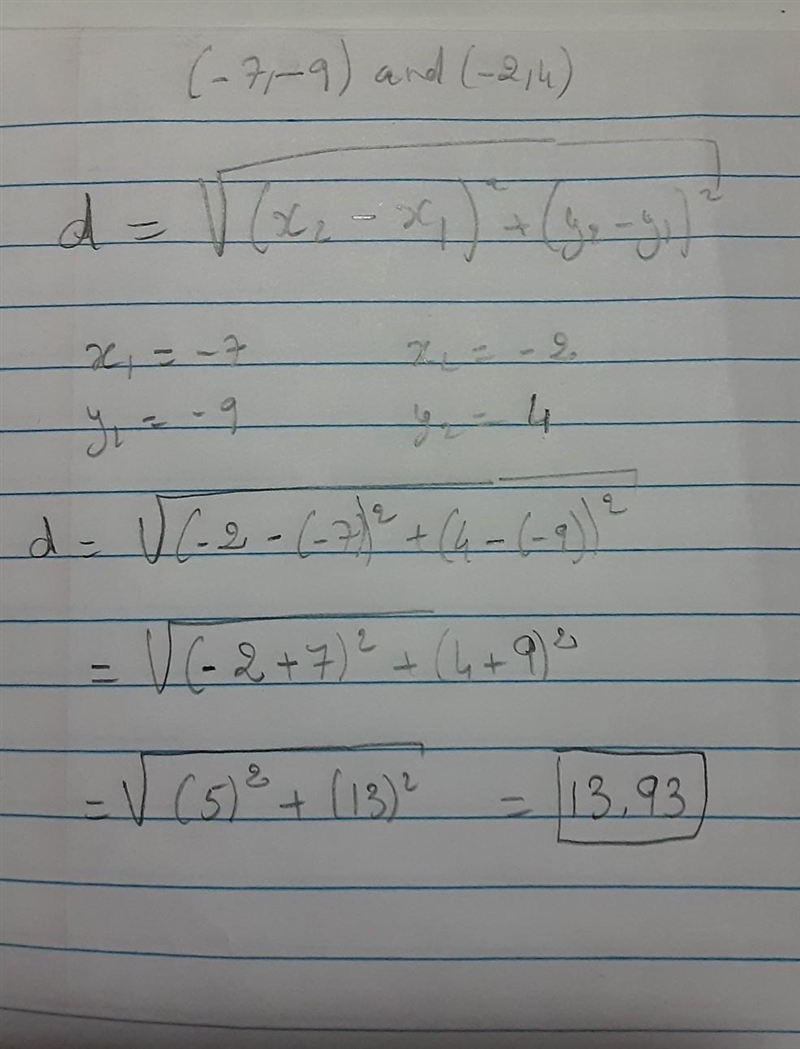 (-7,-9) and (-2,4)
d = √(x₂ - x₁)² + (y₂ - y₁)²
x₁ = -7 x₂ = -2
y₁ = -9 y₂ = 4
d = √(-2 - (-7)² + (4 - (-9))²
= √(-2+7)² + (4+9)²
= √(5)² + (13)² = 13.93